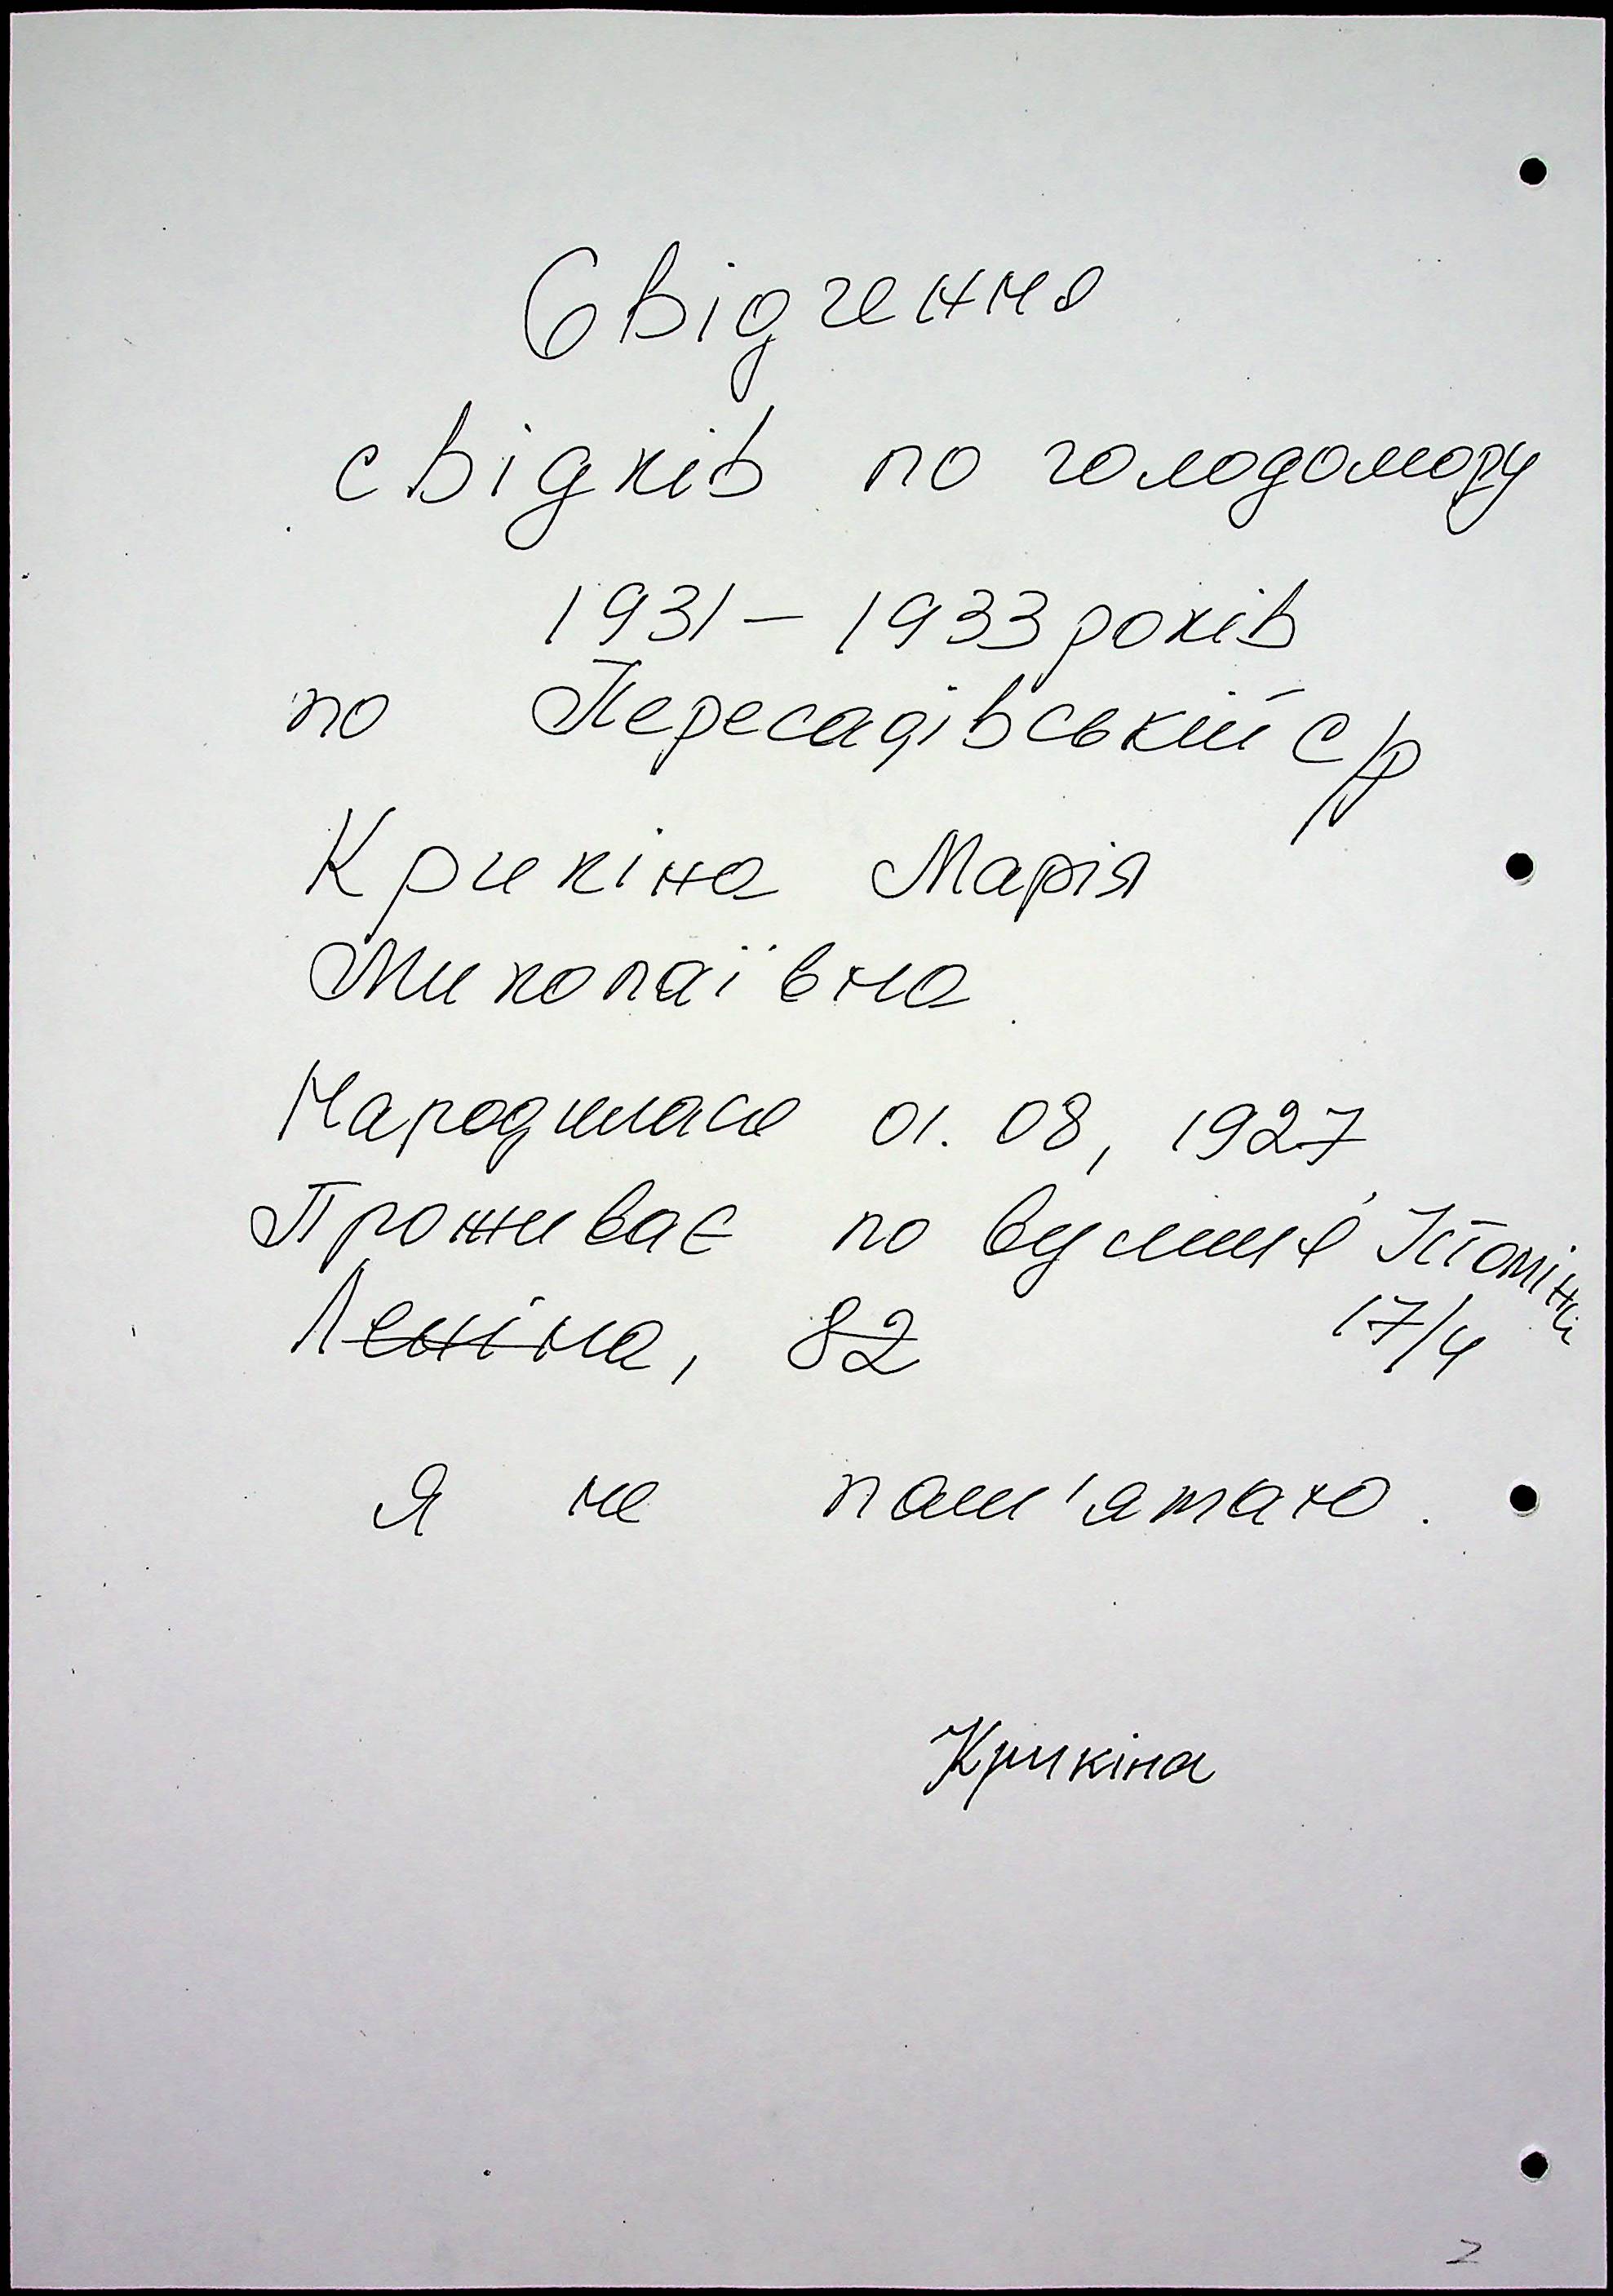 Свідчення
свідків по голодомору
1931 – 1933 років
по Пересадівській с/р
Крикіна Марія
Миколаївна
Народилася 01. 08, 1927
Проживає по вулиці Істоміна
Леніна, 82 17/4
Я не пам'ятаю.
Крикіна
2